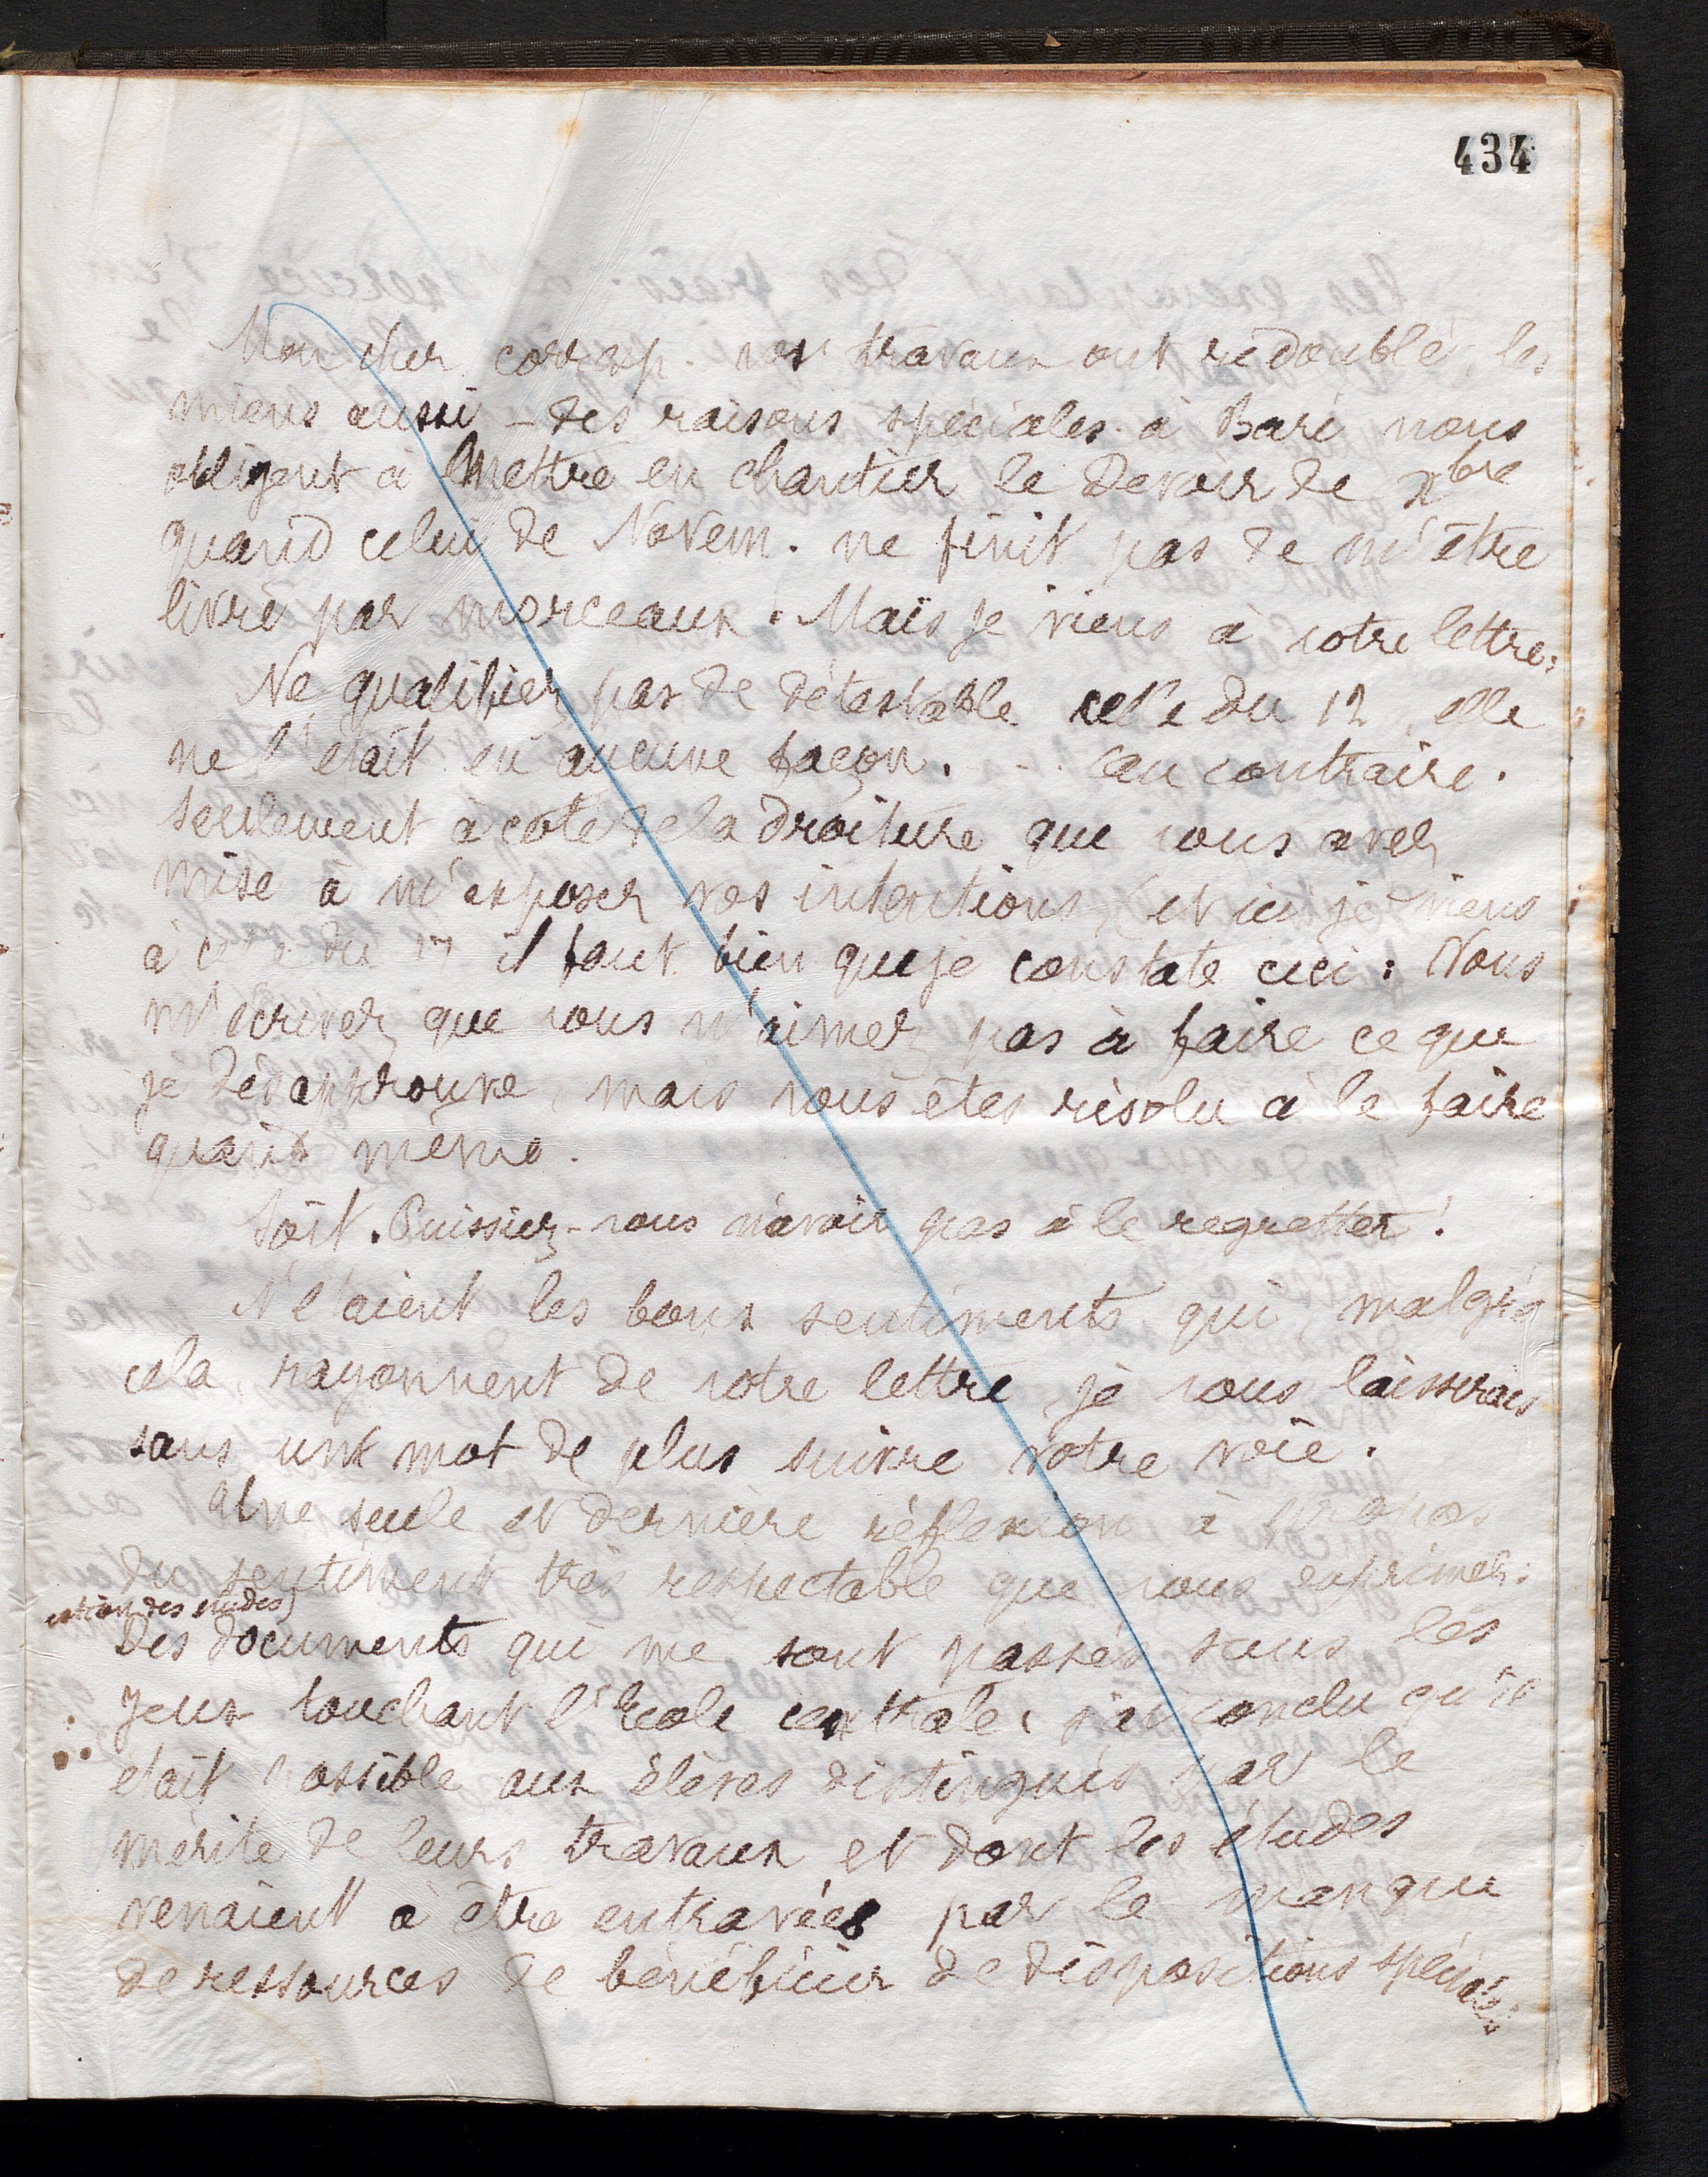 434
Mon cher corresp. vos travaux ont redoublé, les
miens aussi – des raisons spéciales à Baré nous
obligent à mettre en chantier le Devoir de Xbre
quand celui de Novem. ne finit pas de m'être
livré par morceaux. Mais je viens à votre lettre:
Ne qualifiez pas de détestable celle du 12, elle
ne l'était en aucune façon. - - - au contraire.
Seulement à côté de la droiture que vous avez
mise à m'exposer vos intentions, (et ici je viens
à celle du 17 il faut bien que je constate ceci: Vous
m'écrivez que vous n'aimez pas à faire ce que
je désapprouve, mais vous êtes résolu à le faire
quand même.
Soit. Puissiez-vous n'avoir pas à le regretter!
N'étaient les bons sentiments qui, malgré
cela, rayonnent de votre lettre, je vous laisserais
sans un mot de plus suivre votre voie.
Une seule et dernière réflexion à propos
du sentiment très respectable que vous exprimez:
des études)
Des documents qui me sont passés sous les
yeux touchant l'Ecole centrale, j'ai conclu qu'il
était possible aux élèves distingués par le
mérite de leurs travaux et dont les études
venaient à être entravées par le manque
de ressources de bénéficier de dispositions spéciales